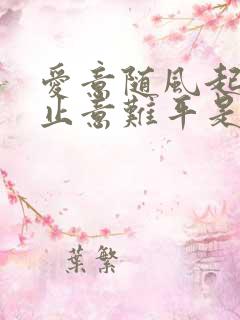 愛意随風起
止意難平是
葉繁